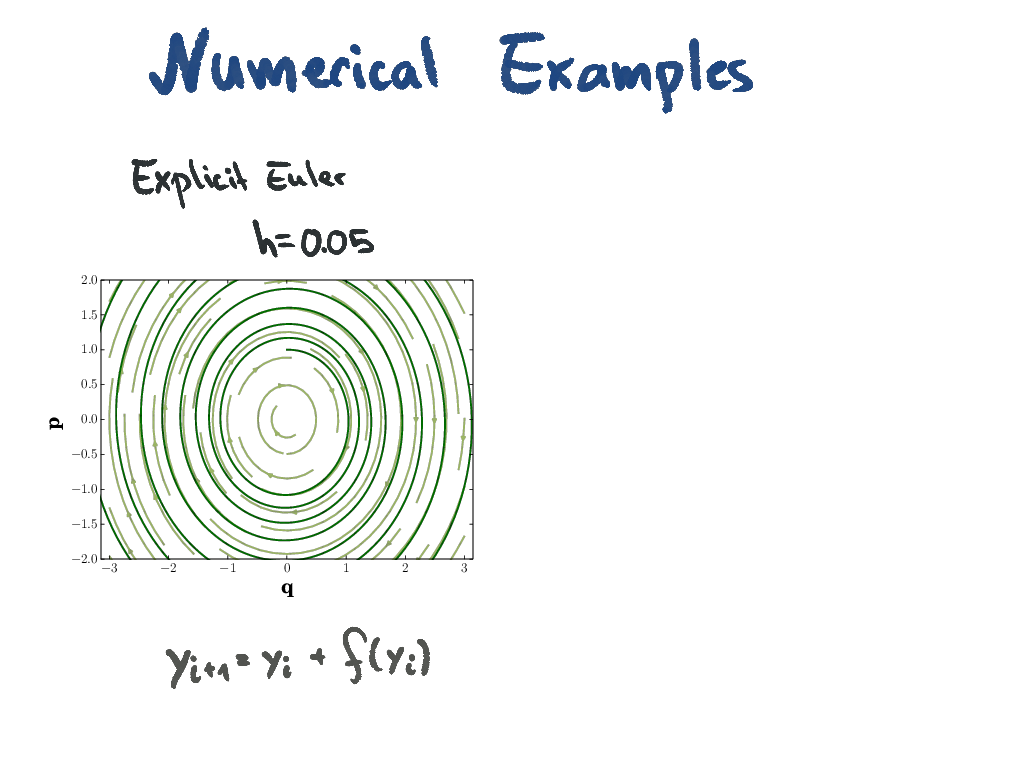 Numerical Examples
Explicit Euler
h=0.05
2.0
1.5
1.0
0.5
0.0
−0.5
−1.0
−1.5
−2.0
p
−3 −2 −1 0 1 2 3
q
y_{i+1} = y_i + f(y_i)